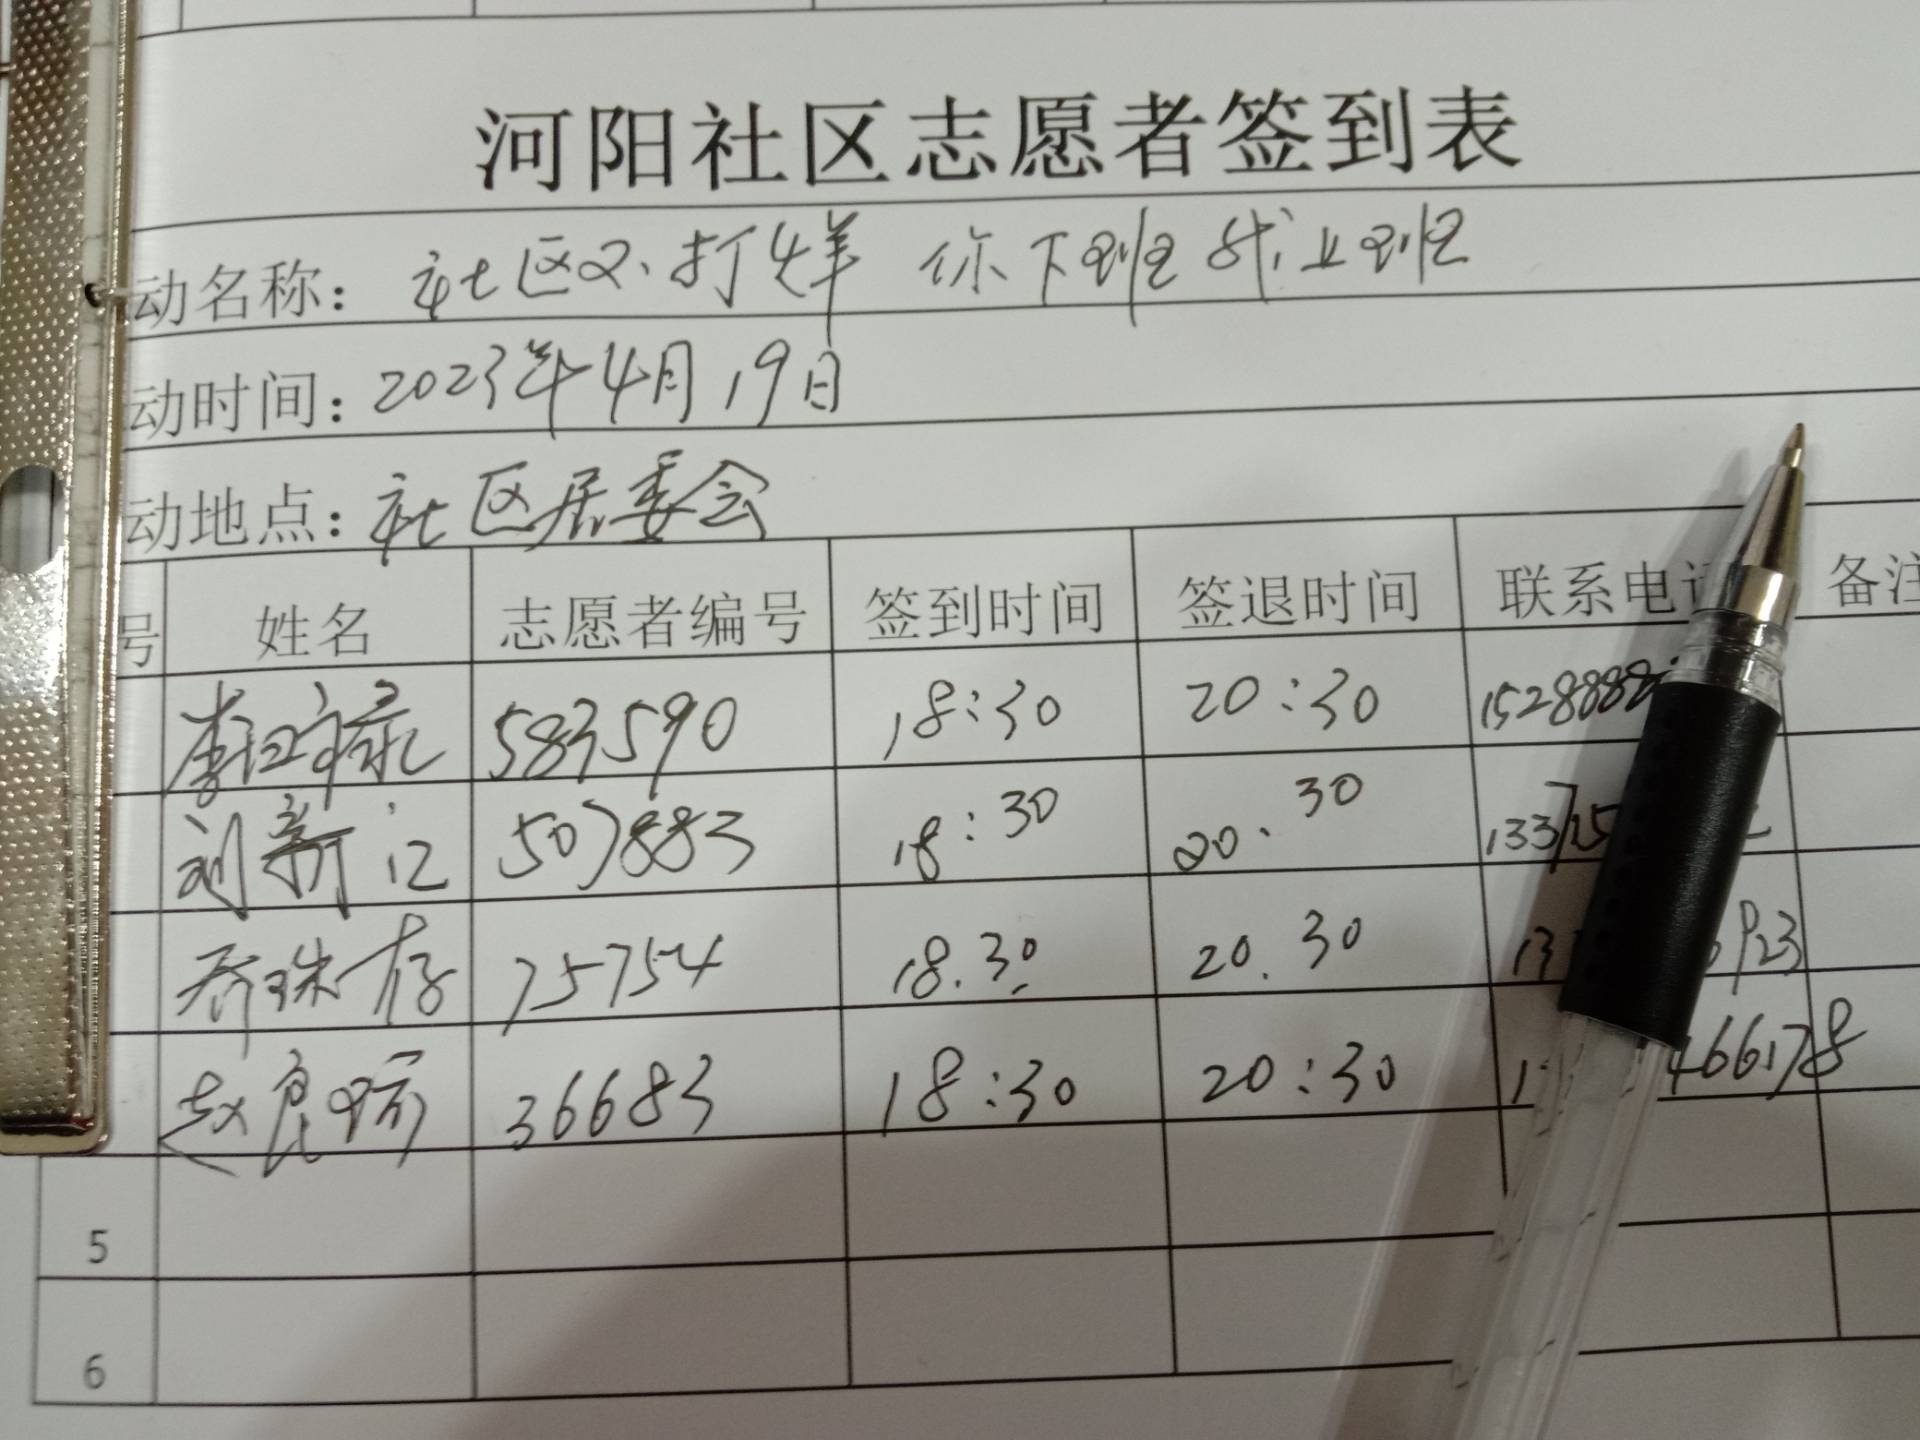 河阳社区志愿者签到表
动名称： 社区不打烊 你下班我上班
动时间：2023年4月19日
动地点：社区居委会
号 姓名 志愿者编号 签到时间 签退时间 联系电 备注
583590 18:30 20:30 1528888
刘新 507883 18:30 20.30 13375
乔珠存 75754 18.30 20.30 13 923
赵良 36683 18:30 20:30 1 466178
5
6